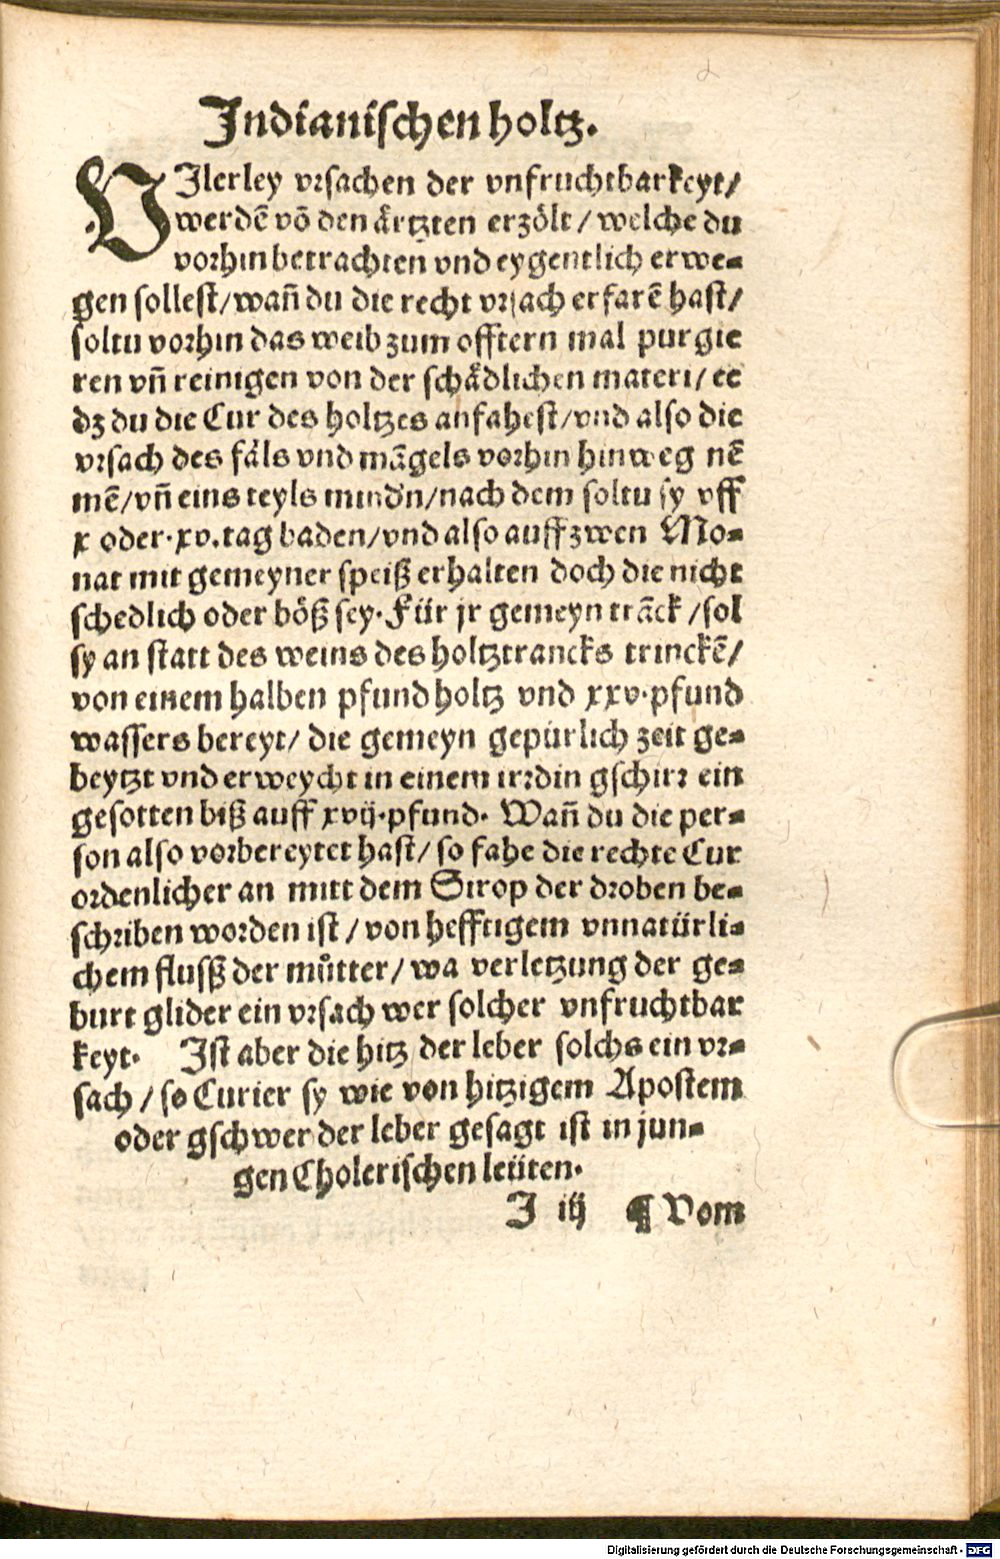 Indianischen holtz.
VIlerley vrsachen der vnfruchtbarkeyt/
werdẽ võ den ärtzten erzölt / welche du
vorhin betrachten vnd eygentlich erwe-
gen sollest/wañ du die recht vrsach erfarẽ hast/
soltu vorhin das weib zum offtern mal purgie
ren vñ reinigen von der schädlichen materi/ ee
dz du die Cur des holtzes anfahest/vnd also die
vrsach des fäls vnd mãgels vorhin hinweg nẽ
mẽ/vñ eins teyls mindn/nach dem soltu sy vff
x oder.xv.tag baden/vnd also auff zwen Mo-
nat mit gemeyner speiß erhalten doch die nicht
schedlich oder böß sey. Für jr gemeyn trãck /sol
sy an statt des weins des holtztrancks trinckẽ/
von einem halben pfund holtz vnd xxv.pfund
wassers bereyt/ die gemeyn gepürlich zeit ge-
beytzt vnd erweycht in einem irrdin gschirr ein
gesotten biß auff xvij.pfund. Wañ du die per-
son also vorbereytet hast/ so fahe die rechte Cur
ordenlicher an mitt dem Sirop der droben be-
schriben worden ist / von hefftigem vnnatürli-
chem flusß der můtter/ wa verletzung der ge-
burt glider ein vrsach wer solcher vnfruchtbar
keyt. Ist aber die hitz der leber solchs ein vr-
sach / so Curier sy wie von hitzigem Apostem
oder gschwer der leber gesagt ist in jun-
gen Cholerischen leüten.
I iij ¶ Vom
Digitalisierung gefördert durch die Deutsche Forschungsgemeinschaft - DFG